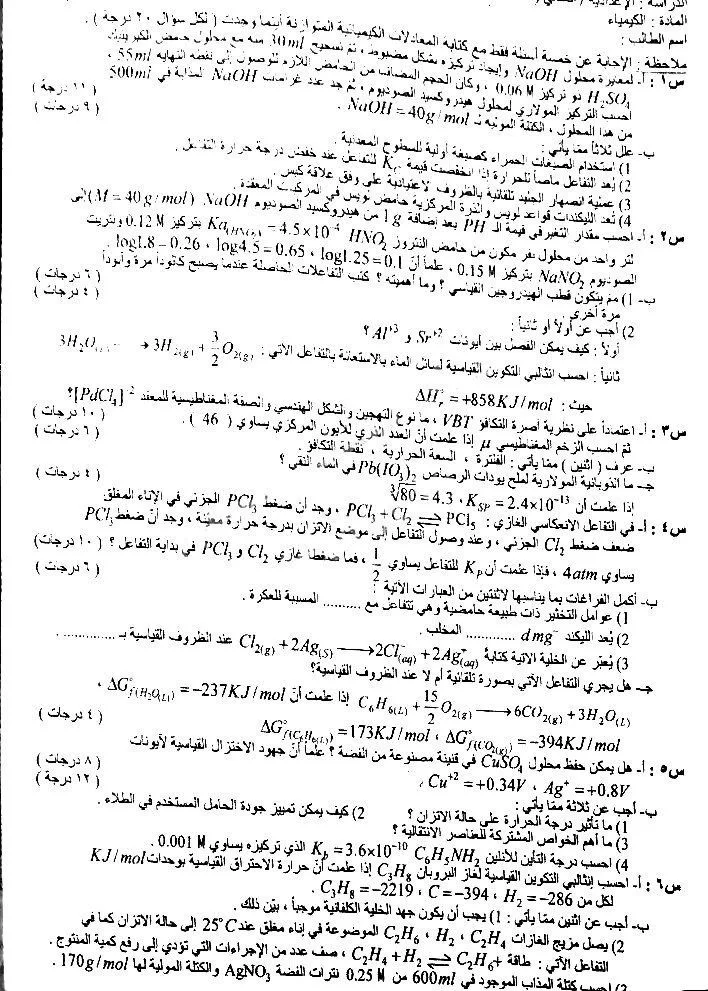 الدراسة : الإعدادية /
المادة : الكيمياء
اسم الطالب :
ملاحظة : الإجابة عن خمسة أسئلة فقط مع كتابة المعادلات الكيميائية المتوازنة أينما وجدت ( لكل سؤال ٢٠ درجة ) .
س١ : أ- لمعيرة محلول NaOH وإيجاد تركيزه بشكل مضبوط ، تم تسحيح 30ml منه مع محلول حامض الكبريتيك
H₂SO₄ ذو تركيز 0.06 M ، وكان الحجم المضاف من الحامض اللازم للوصول إلى نقطة النهاية 55ml ،
احسب التركيز المولاري لمحلول هيدروكسيد الصوديوم ، ثم جد عدد غرامات NaOH المذابة في 500ml
من هذا المحلول ، الكتلة المولية لـ NaOH = 40g/mol . ( ١١ درجة )
ب- علل ثلاثاً مما يأتي : ( ٩ درجات )
1) استخدام الصبغات الحمراء كصبغة أولية للسطوح المعدنية .
2) يُعد التفاعل ماصاً للحرارة إذا انخفضت قيمة Kc للتفاعل عند خفض درجة حرارة التفاعل .
3) عملية انصهار الجليد تلقائية بالظروف الاعتيادية على وفق علاقة كبس .
4) تُعد الليكندات قواعد لويس والذرة المركزية حامض لويس في المركبات المعقدة .
س٢ : أ- احسب مقدار التغير في قيمة الـ PH بعد إضافة 1g من هيدروكسيد الصوديوم NaOH (M = 40g/mol) إلى
لتر واحد من محلول بفر مكون من حامض النتروز HNO₂ Ka(HNO₂) = 4.5×10⁻⁴ بتركيز 0.12 M ونتريت
الصوديوم NaNO₂ بتركيز 0.15 M ، علماً أن log1.25 = 0.1 ، log4.5 = 0.65 ، log1.8 = 0.26 .
ب- 1) مم يتكون قطب الهيدروجين القياسي ؟ وما أهميته ؟ كتب التفاعلات الحاصلة عندما يصبح كاثوداً مرة وأنوداً
مرة أخرى . ( ٦ درجات )
2) أجب عن أولاً أو ثانياً : ( ٤ درجات )
أولاً : كيف يمكن الفصل بين أيونات Sr⁺² و Al⁺³ ؟
ثانياً : احسب انثالبي التكوين القياسية لسائل الماء بالاستعانة بالتفاعل الآتي : 3H₂O → 3H₂(g) + 3/2 O₂(g)
حيث : ΔH°r = +858KJ/mol
س٣ : أ- اعتماداً على نظرية آصرة التكافؤ VBT ، ما نوع التهجين والشكل الهندسي والصفة المغناطيسية للمعقد [PdCl₄]⁻² ؟
ثم احسب الزخم المغناطيسي μ إذا علمت أن العدد الذري للأيون المركزي يساوي ( 46 ) . ( ١٠ درجات )
ب- عرف ( اثنين ) مما يأتي : الفلترة ، السعة الحرارية ، نقطة التكافؤ ( ٦ درجات )
جـ- ما الذوبانية المولارية لملح يودات الرصاص Pb(IO₃)₂ في الماء النقي ؟
إذا علمت أن Ksp = 2.4×10⁻¹³ ، ∛80 = 4.3 ( ٤ درجات )
س٤ : أ- في التفاعل الانعكاسي الغازي : PCl₃ + Cl₂ ⇌ PCl₅ ، وجد أن ضغط PCl₃ الجزئي في الإناء المغلق
ضعف ضغط Cl₂ الجزئي ، وعند وصول التفاعل إلى موضع الاتزان بدرجة حرارة معينة ، وجد أن ضغط PCl₃
يساوي 4atm ، فإذا علمت أن Kp للتفاعل يساوي 1/2 ، فما ضغطا غازي Cl₂ و PCl₃ في بداية التفاعل ؟ ( ١٠ درجات )
ب- أكمل الفراغات بما يناسبها لاثنتين من العبارات الآتية : ( ٦ درجات )
1) عوامل التخثير ذات طبيعة حامضية وهي تتفاعل مع .......... المسببة للعكرة .
2) يُعد الليكند dmg⁻ .............. المخلب .
3) يُعبّر عن الخلية الآتية كتابةً Cl₂(g) + 2Ag(S) → 2Cl⁻(aq) + 2Ag⁺(aq) عند الظروف القياسية بـ ..............
جـ- هل يجري التفاعل الآتي بصورة تلقائية أم لا عند الظروف القياسية؟
C₆H₆(L) + 15/2 O₂(g) → 6CO₂(g) + 3H₂O(L) إذا علمت أن ΔG°f(H₂O(L)) = −237KJ/mol ،
ΔG°f(C₆H₆(L)) = 173KJ/mol ، ΔG°f(CO₂(g)) = −394KJ/mol ( ٤ درجات )
س٥ : أ- هل يمكن حفظ محلول CuSO₄ في قنينة مصنوعة من الفضة ؟ علماً أن جهود الاختزال القياسية لأيونات
Cu⁺² = +0.34V ، Ag⁺ = +0.8V . ( ٨ درجات )
ب- أجب عن ثلاثة مما يأتي : ( ١٢ درجة )
1) ما تأثير درجة الحرارة على حالة الاتزان ؟ 2) كيف يمكن تمييز جودة الحامل المستخدم في الطلاء .
3) ما أهم الخواص المشتركة للعناصر الانتقالية ؟
4) احسب درجة التأين للأنلين C₆H₅NH₂ Kb = 3.6×10⁻¹⁰ الذي تركيزه يساوي 0.001 M .
س٦ : أ- احسب إنثالبي التكوين القياسية لغاز البروبان C₃H₈ إذا علمت أن حرارة الاحتراق القياسية بوحدات KJ/mol
لكل من H₂ = −286 ، C = −394 ، C₃H₈ = −2219 .
ب- أجب عن اثنين مما يأتي : 1) يجب أن يكون جهد الخلية الكلفانية موجباً ، بيّن ذلك .
2) يصل مزيج الغازات C₂H₄ ، H₂ ، C₂H₆ الموضوعة في إناء مغلق عند 25°C إلى حالة الاتزان كما في
التفاعل الآتي : طاقة + C₂H₄ + H₂ ⇌ C₂H₆ ، صف عدد من الإجراءات التي تؤدي إلى رفع كمية المنتوج .
3) احسب كتلة المذاب الموجود في 600ml من 0.25 M نترات الفضة AgNO₃ والكتلة المولية لها 170g/mol .